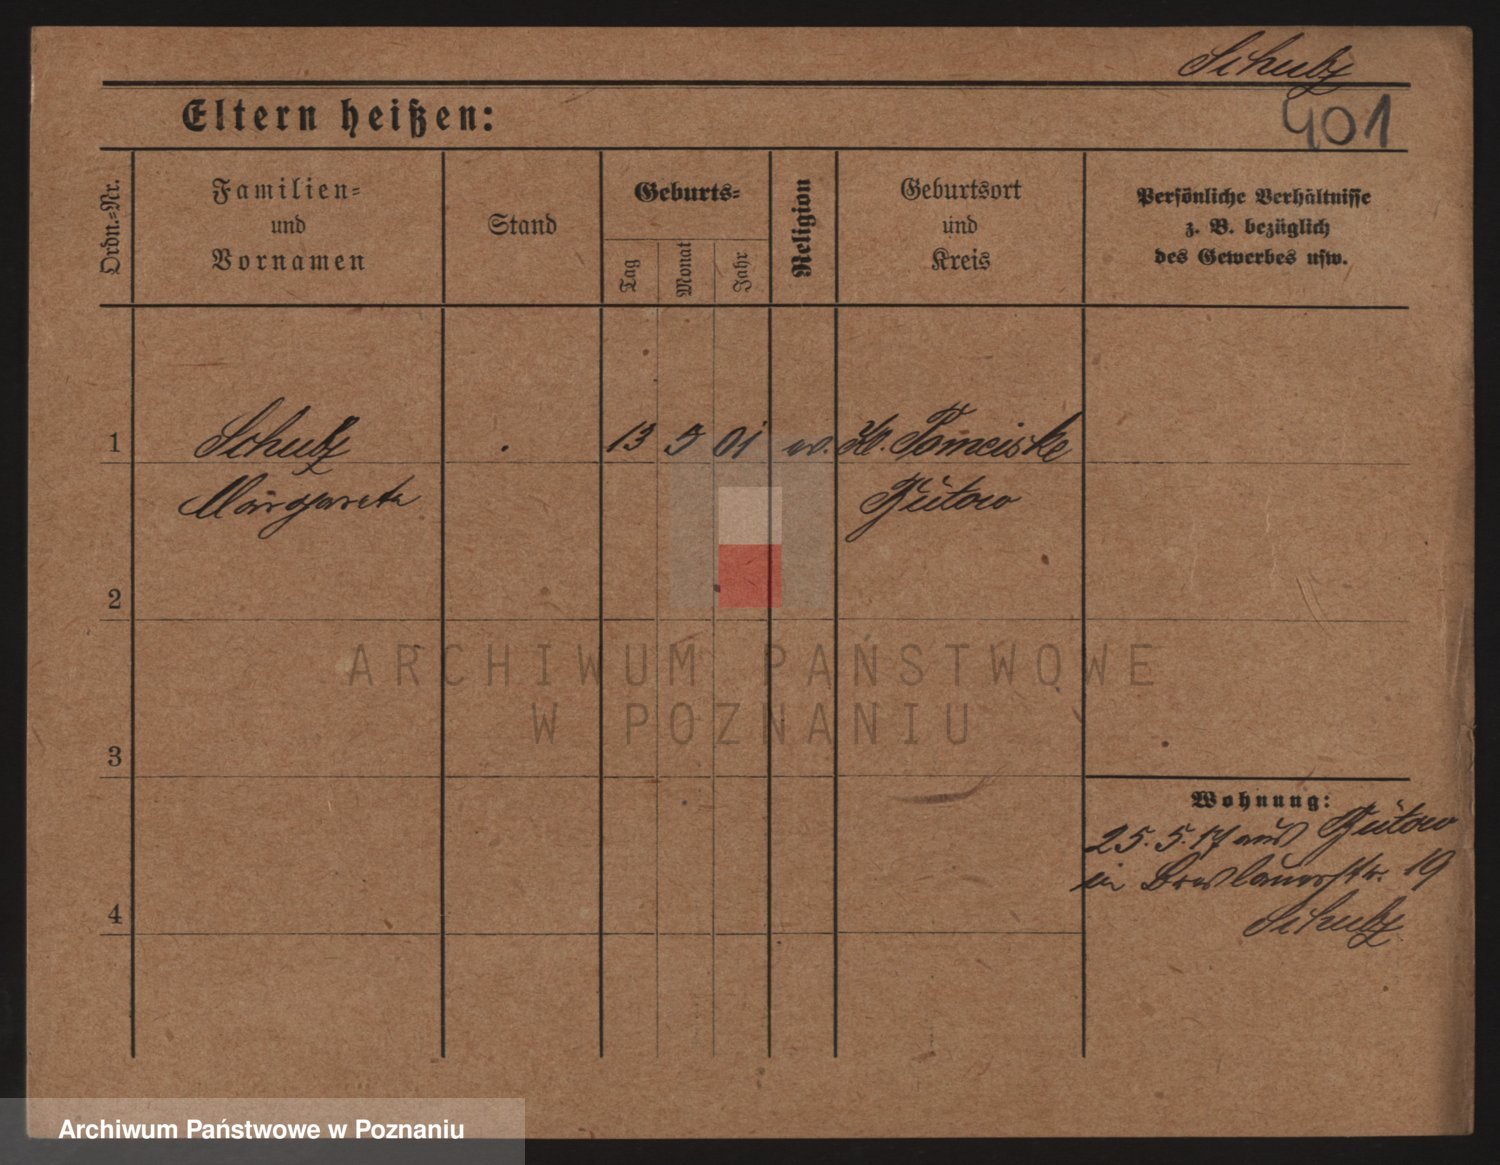 Schulz
Eltern heißen:
901
Ordn.=Nr.
Familien=
und
Vornamen
Stand
Geburts=
Tag
Monat
Jahr
Religion
Geburtsort
und
Kreis
Persönliche Verhältnisse
z. B. bezüglich
des Gewerbes usw.
1
Schulz
13
5
01
ev.
Kl. Pomeiske
Margarete
Bütow
2
ARCHIWUM PAŃSTWOWE
W POZNANIU
3
Wohnung:
25. 5. 17 aus Bütow
in Breslauerstr. 19
Schulz
4
Archiwum Państwowe w Poznaniu